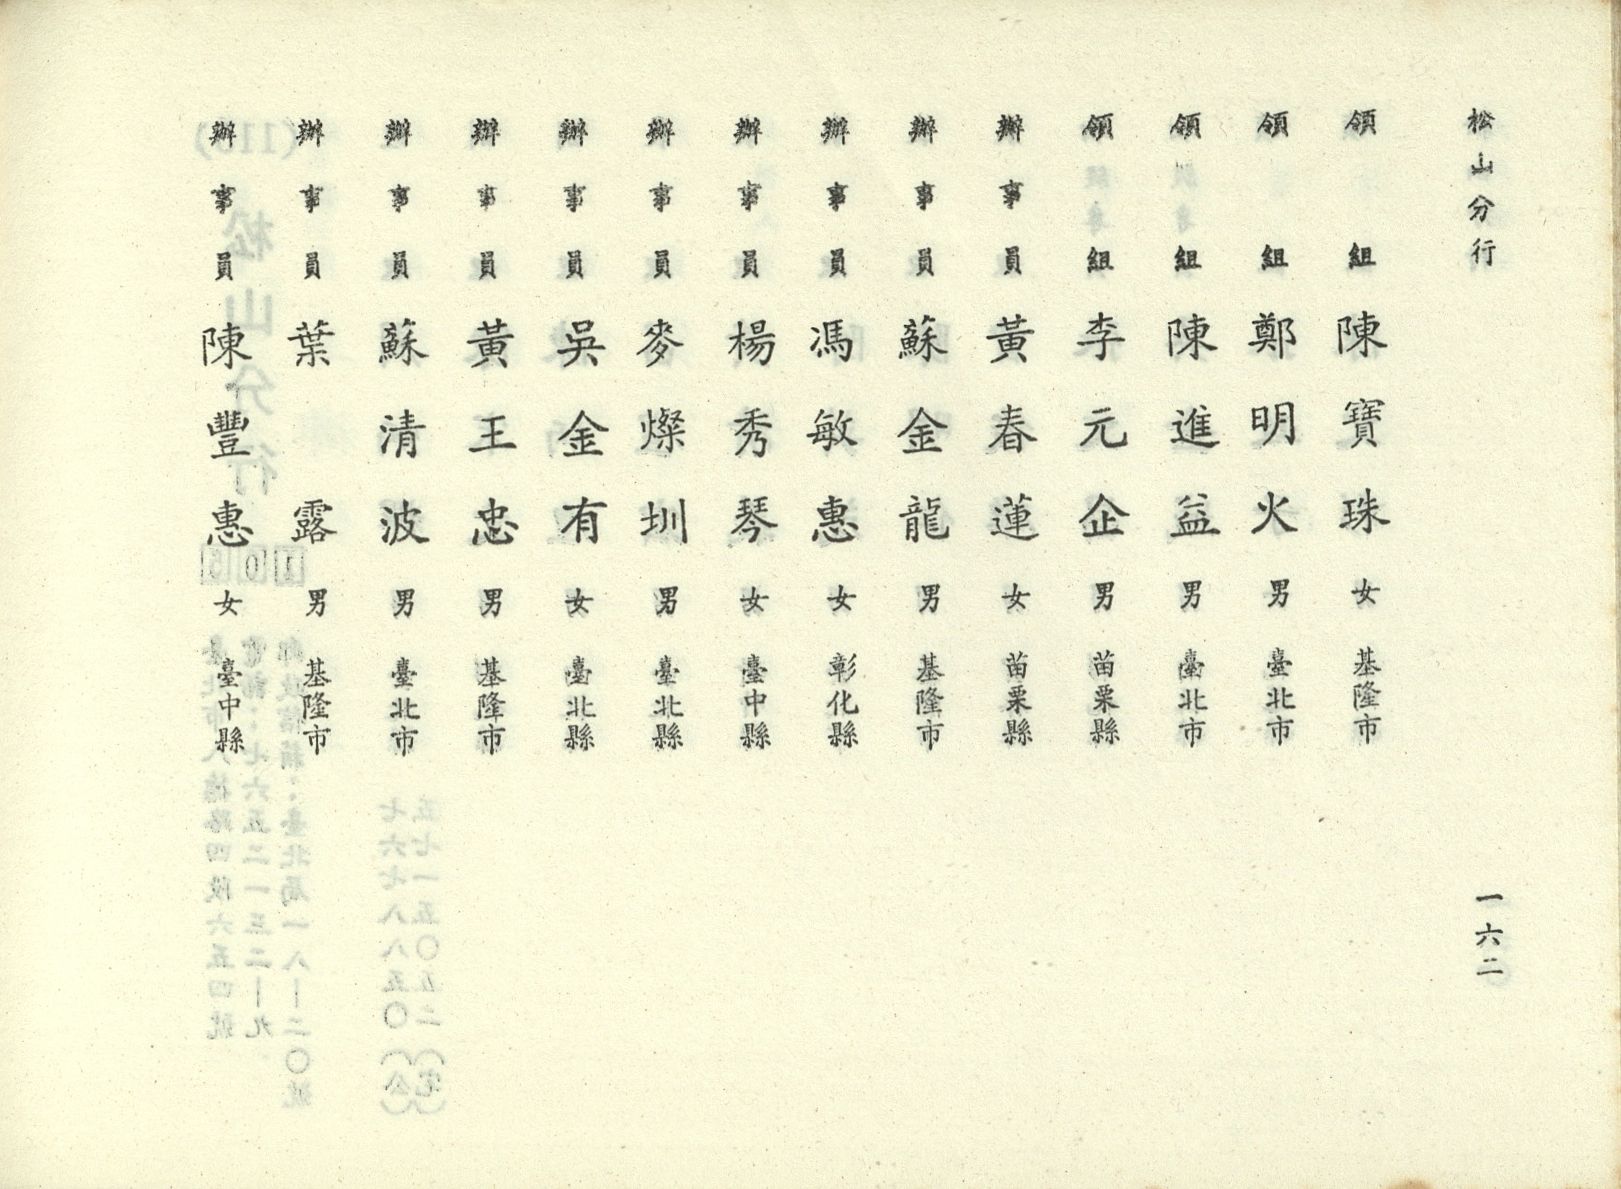 松山分行
一六二
領組 陳寶珠 女 基隆市
領組 鄭明火 男 臺北市
領組 陳進益 男 臺北市
領組 李元企 男 苗栗縣
辦事員 黃春蓮 女 苗栗縣
辦事員 蘇金龍 男 基隆市
辦事員 馮敏惠 女 彰化縣
辦事員 楊秀琴 女 臺中縣
辦事員 麥燦圳 男 臺北縣
辦事員 吳金有 女 臺北縣
辦事員 黃王忠 男 基隆市
辦事員 蘇清波 男 臺北市
辦事員 葉露 男 基隆市
辦事員 陳豐惠 女 臺中縣